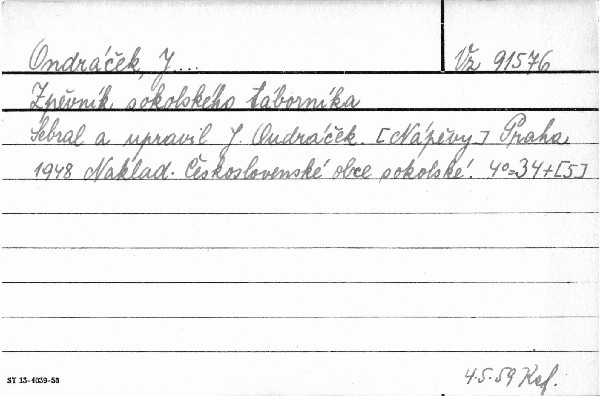 Ondráček, J....
Vz 91576
Zpěvník sokolského táborníka
Sebral a upravil J. Ondráček. [Nápěvy.] Praha
1948 Naklad. Československé obce sokolské. 4°=34+[5]
ST 13-4039-58
4.5.59 Kaf.